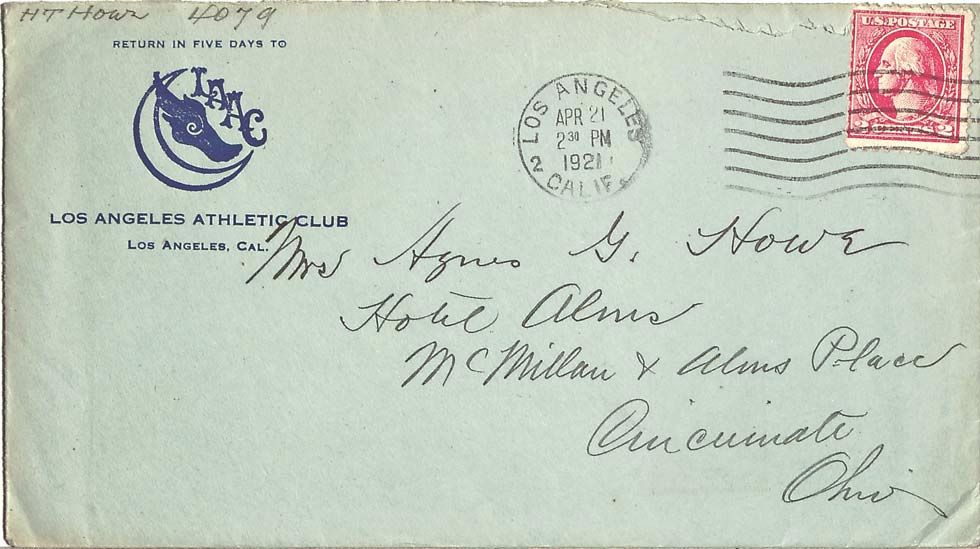 HT Howe 4079
RETURN IN FIVE DAYS TO
LAAC
LOS ANGELES ATHLETIC CLUB
LOS ANGELES, CAL.
LOS ANGELES
APR 21
2 30 PM
1921
2 CALIF.
U.S. POSTAGE
2 2
Mrs Agnes G. Howe
Hotel Alms
McMillan & Alms Place
Cincinnati
Ohio